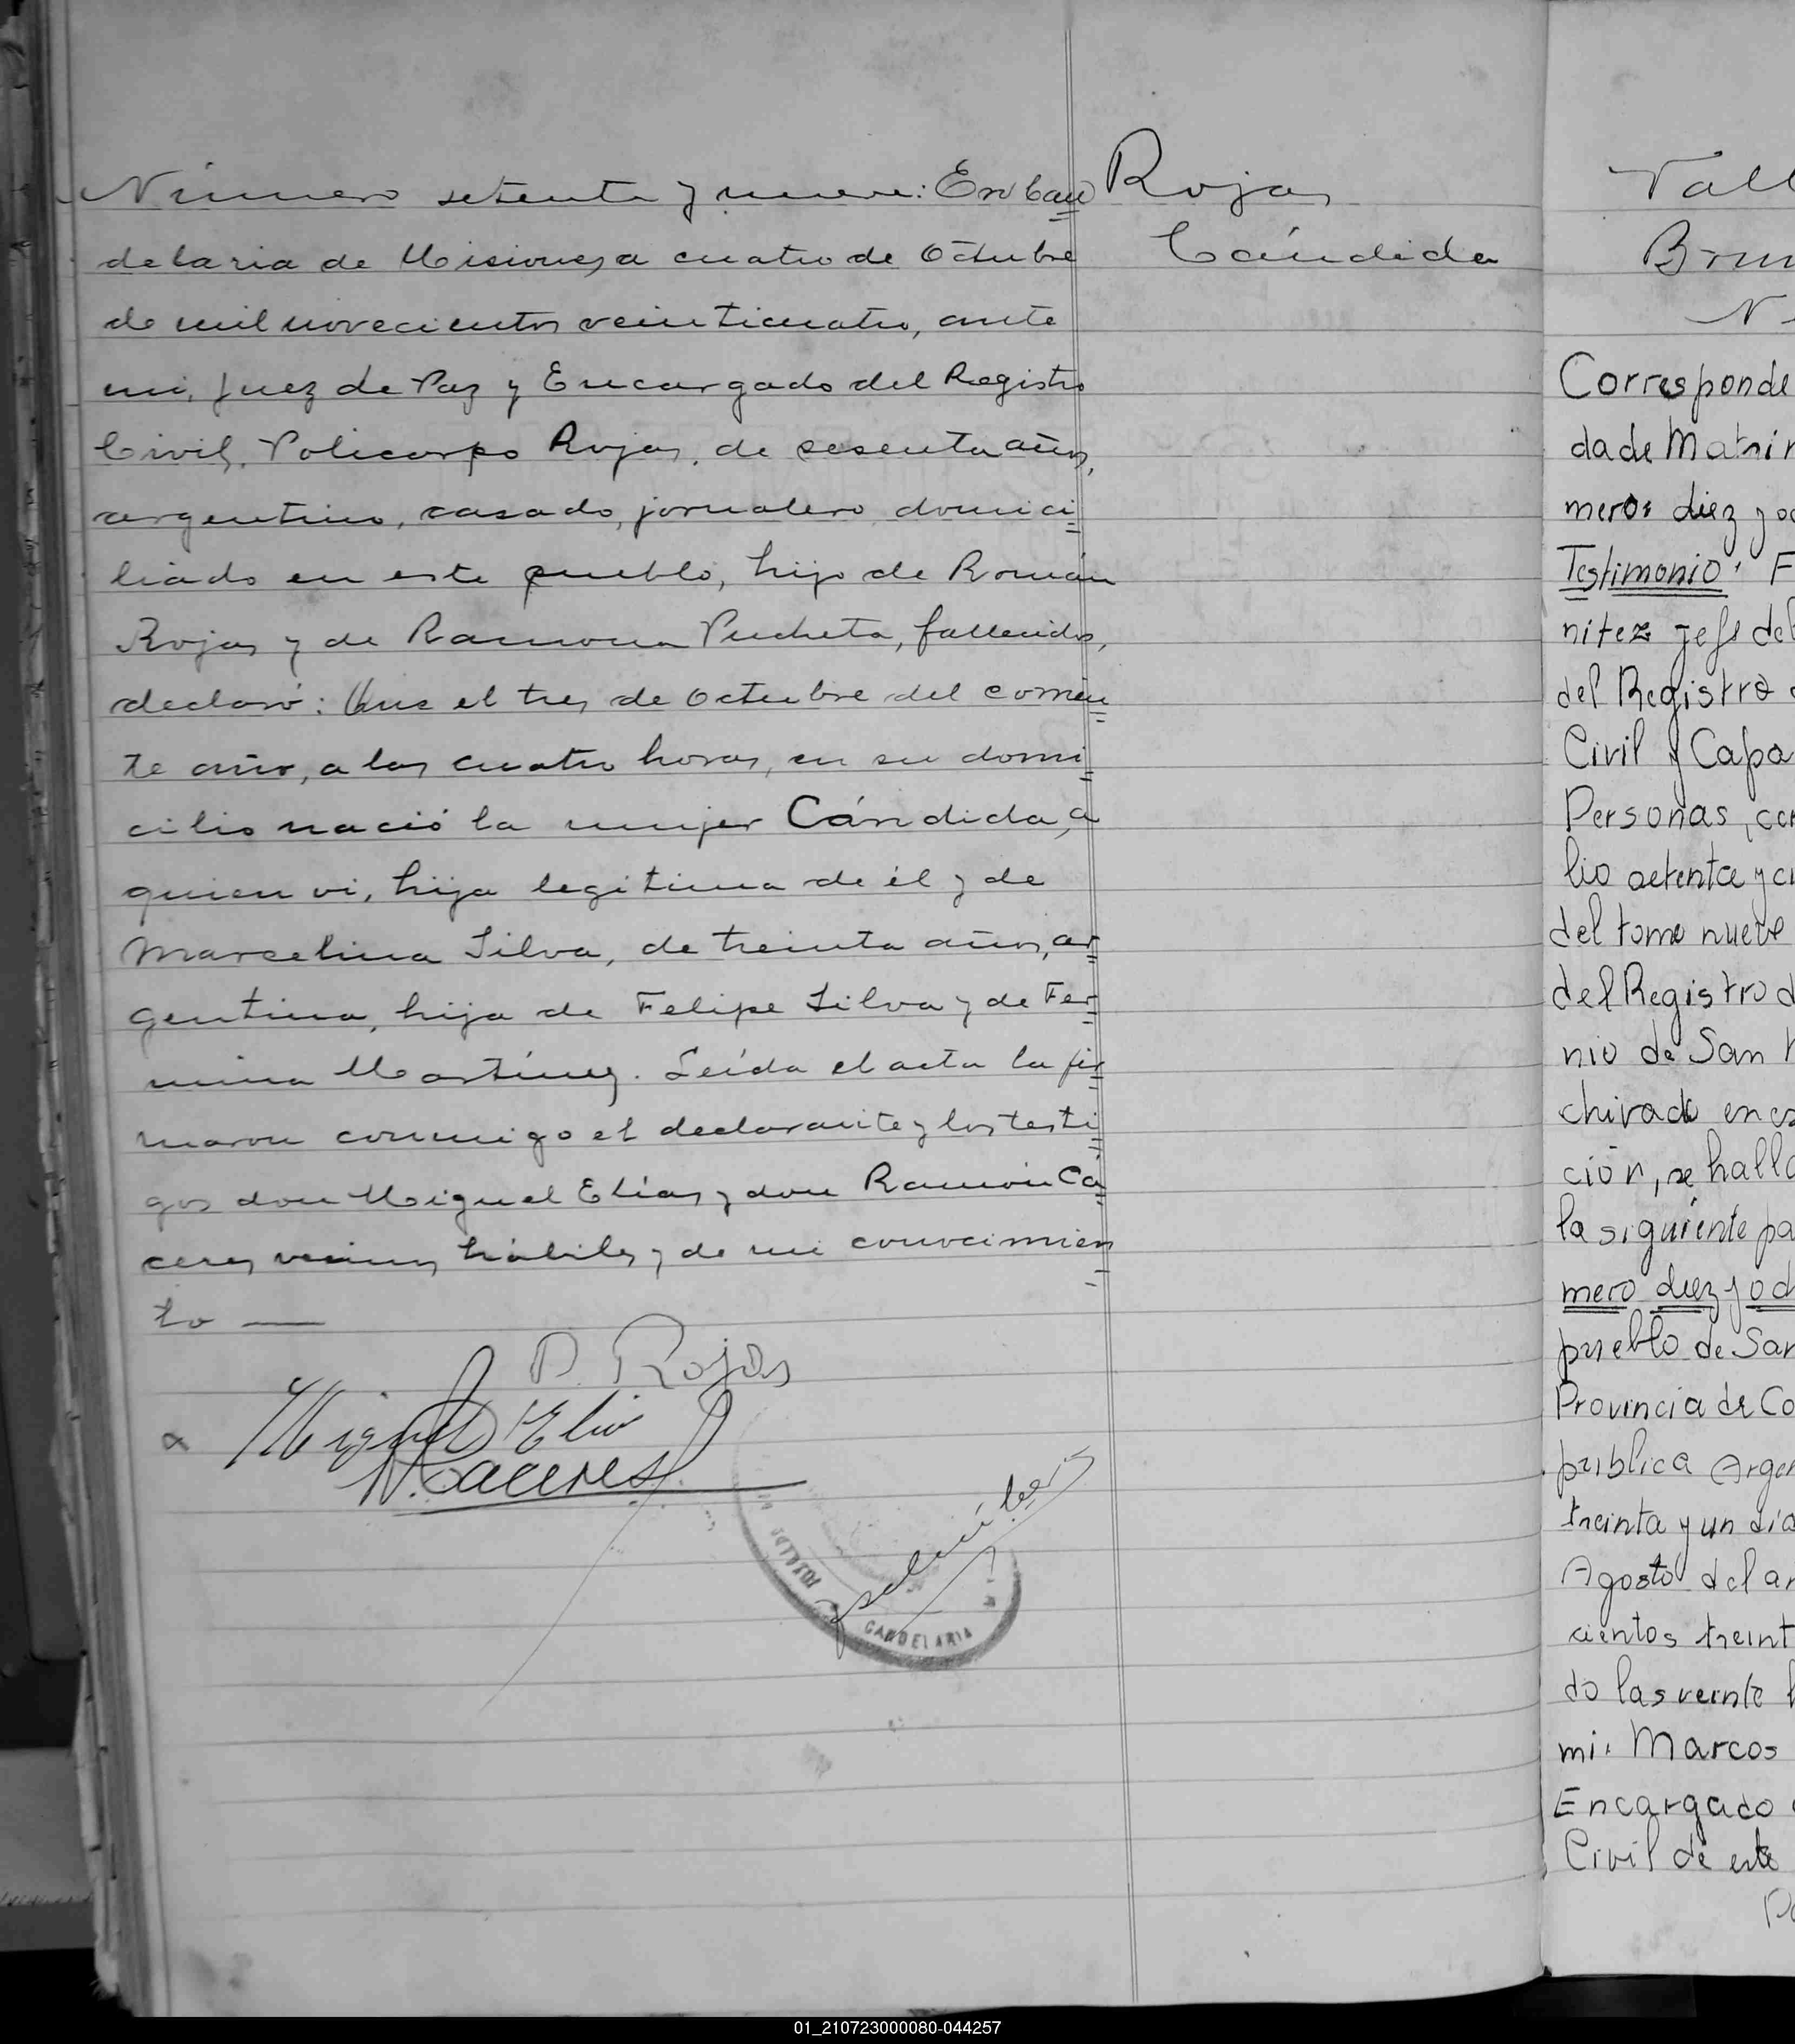 Número setenta y nueve: En Can
delaria de Misiones, a cuatro de Octubre
de mil novecientos veinticuatro, ante
mi, Juez de Paz y Encargado del Registro
Civil, Policarpo Rojas, de sesenta años,
argentino, casado, jornalero domici
liado en este pueblo, hijo de Román
Rojas y de Ramona Pucheta, fallecidos,
declaró: Que el tres de Octubre del corrien
te año, a las cuatro horas, en su domi
cilio nació la mujer Cándida, a
quien vi, hija legitima de él y de
Marcelina Silva, de treinta años, ar
gentina, hija de Felipe Silva y de Fer
mina Martínez. Leída el acta la fir
maron conmigo el declarante y los testi
gos don Miguel Elías y don Ramón Cá
ceres vecinos hábiles y de mi conocimien
to —
P. Rojas
Miguel Elias
R. Caceres
CANDELARIA
Rojas
Cándida
Vall
Brun
N
Corresponde
da de Matrim
mero: diez y oc
Testimonio: F
nitez jefe del
del Registro
Civil y Capa
Personas, cer
lio setenta y ci
del tomo nueve
del Registro d
nio de San
chivado en es
ción, se halla
la siguiente pa
mero diez y och
pueblo de San
Provincia de Co
pública Argen
treinta y un dia
Agosto del añ
cientos treint
do las veinte h
mi: Marcos
Encargado
Civil de este